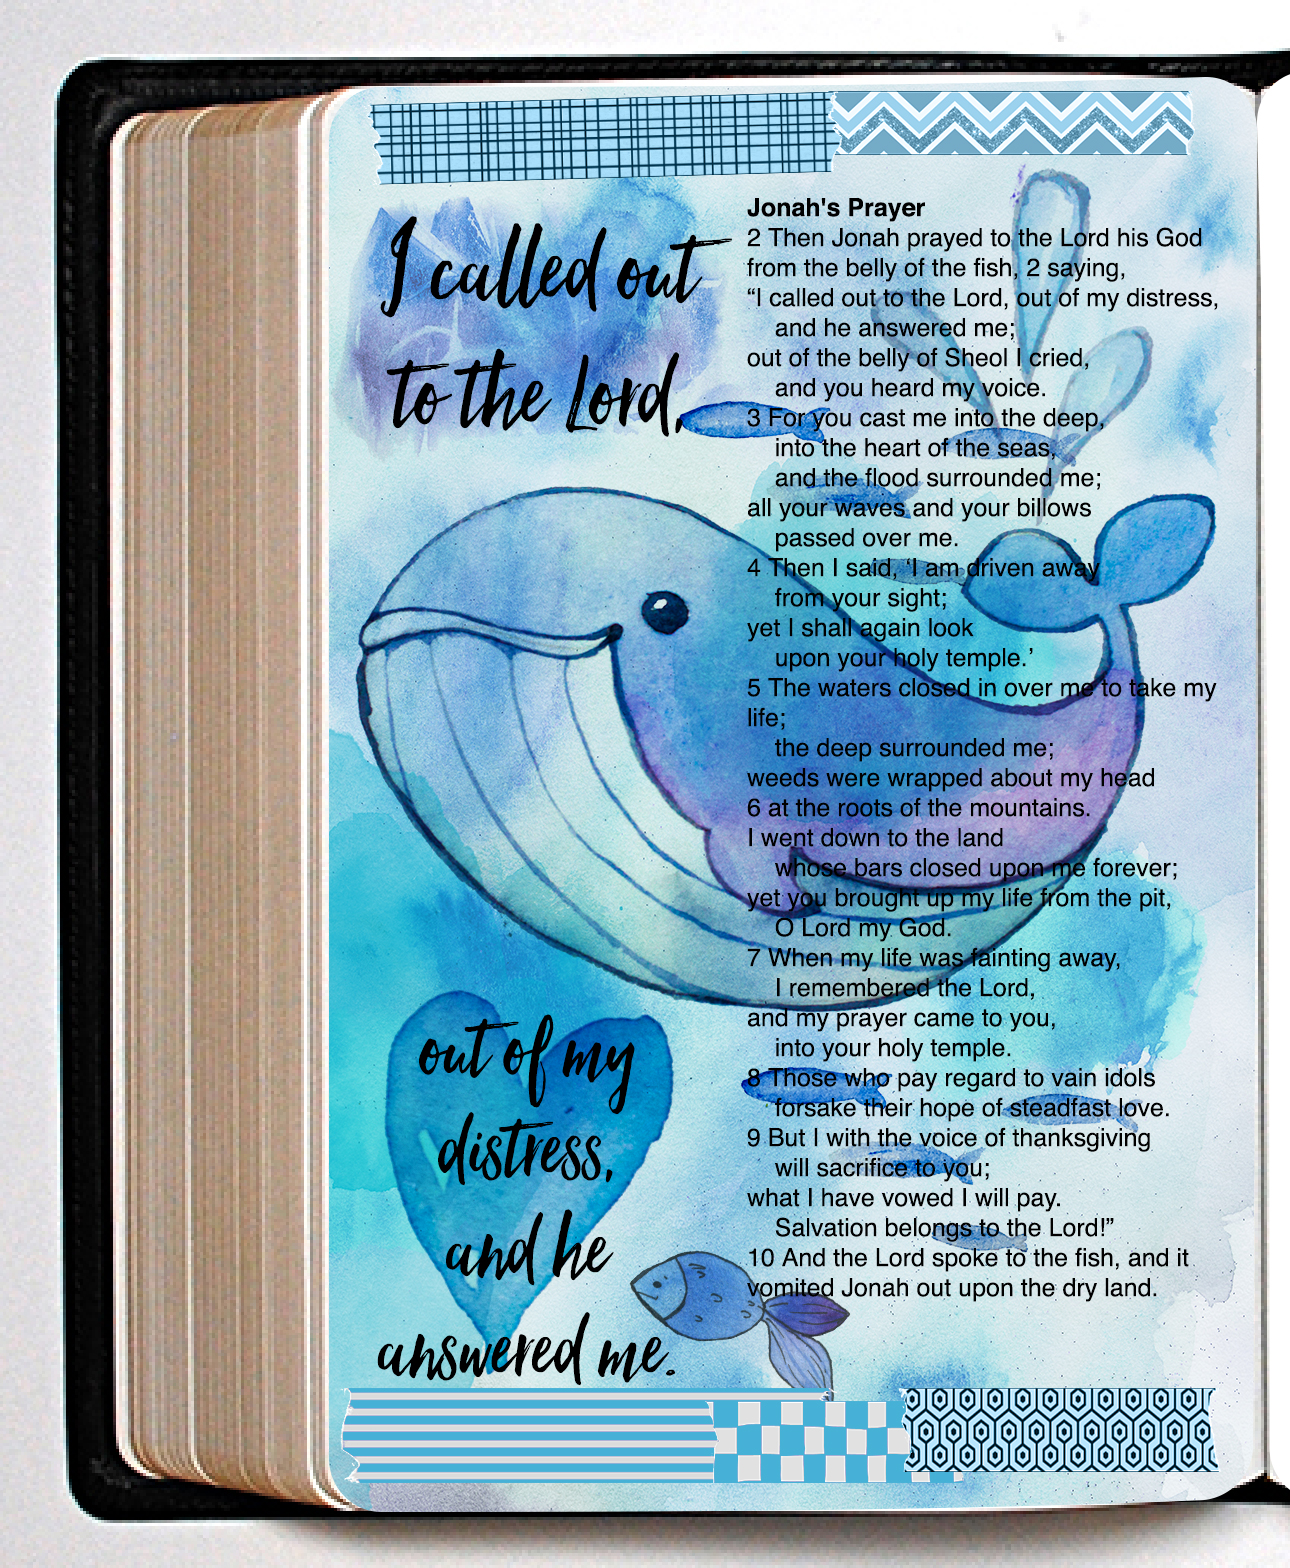 I called out
to the Lord,
out of my
distress,
and he
answered me.
Jonah's Prayer
2 Then Jonah prayed to the Lord his God
from the belly of the fish, 2 saying,
“I called out to the Lord, out of my distress,
and he answered me;
out of the belly of Sheol I cried,
and you heard my voice.
3 For you cast me into the deep,
into the heart of the seas,
and the flood surrounded me;
all your waves and your billows
passed over me.
4 Then I said, ‘I am driven away
from your sight;
yet I shall again look
upon your holy temple.’
5 The waters closed in over me to take my
life;
the deep surrounded me;
weeds were wrapped about my head
6 at the roots of the mountains.
I went down to the land
whose bars closed upon me forever;
yet you brought up my life from the pit,
O Lord my God.
7 When my life was fainting away,
I remembered the Lord,
and my prayer came to you,
into your holy temple.
8 Those who pay regard to vain idols
forsake their hope of steadfast love.
9 But I with the voice of thanksgiving
will sacrifice to you;
what I have vowed I will pay.
Salvation belongs to the Lord!”
10 And the Lord spoke to the fish, and it
vomited Jonah out upon the dry land.